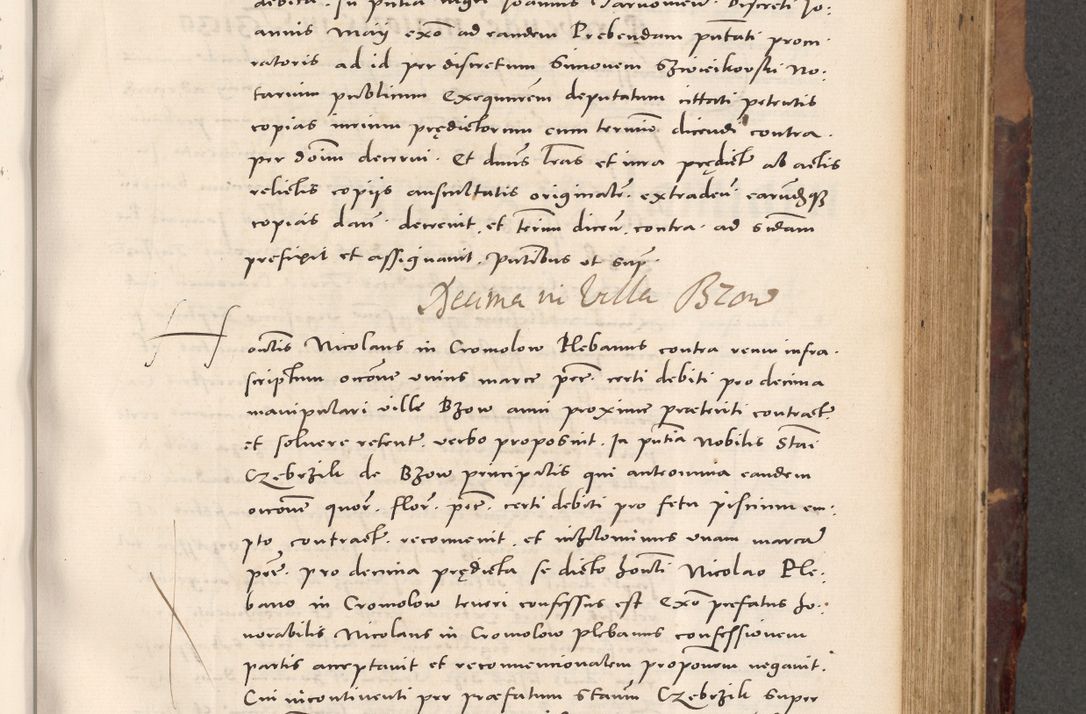 debita. In putia nigri Joannis Czarnomem. Discreti Jo:
annis Maij exõ ad eandem Prebendam putati procu
ratoris ad id per discretum Simonem Szwieikowski No:
tarium publicum Exequutem deputatum cittati petentis
copias iurium prędictorum cum termio dicendi contra.
per doim decerni. Et duns lras et iura prędict ab actis
relictis copijs auscultatis originales. extraden. earudq3
copias dari. decrevit. et termi dicen. contra. ad sedam
prefixit et assignavit. putibus ut sup.
Decima in Villa Bzow
Honestis Nicolaus in Cromolow Plebanus contra reum infra.
scriptum occoue unius marce pec. certi debiti pro decima
manipulari ville Bzow anni proxime praeteriti contract.
et soluere retent. verbo proposuit. In putia Nobilis Stai
Czebrzik de Bzow principalis qui anteomnia eandem
occone quor. flor. pec. certi debiti pro fetu piscium em:
pto contract. reconvenit. et nihilominus unam marca
pec. pro decima prędicta se dicto honti Nicolao Ple:
bano in Cromolow teneri confessus est Exõ prefatus ho:
norabilis Nicolaus in Cromolow plebanus confessionem
partis acceptavit et reconvencionalem proponem negavit.
Cui incontinenti per praefatum Staum Czebrzik super